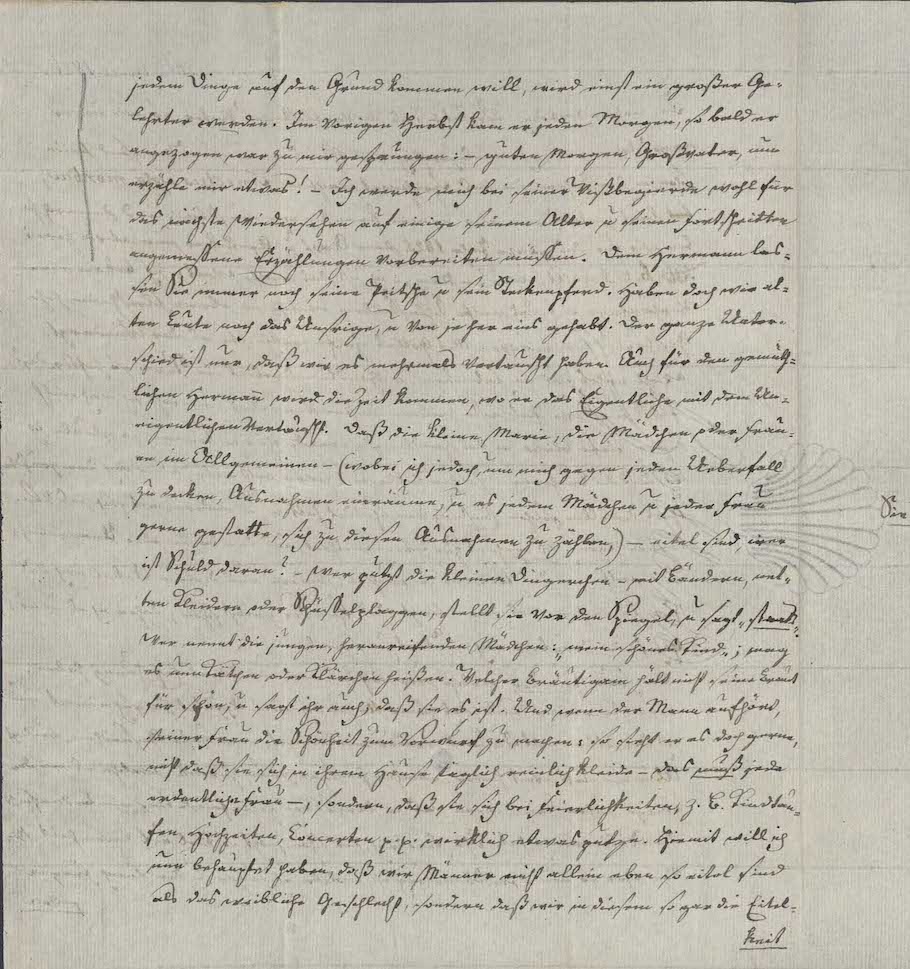 jedem Dinge auf den Grund kommen will, wird einst ein großer Ge-
lehrter werden. Im vorigen Herbst kam er jeden Morgen, so bald er
angezogen war zu mir gesprungen: – guten Morgen, Großvater, nun
erzähle mir etwas! – Ich werde mich bei seiner Wißbegierde wohl für
das nächste Wiedersehen auf einige seinem Alter u seinen Fortschritten
angemessene Erzählungen vorbereiten müssen. Dem Hermann las-
sen Sie immer noch seine Peitsche u sein Steckenpferd. Haben doch wir al-
ten Leute noch das Unsrige, u von je her eins gehabt. Der ganze Unter-
schied ist nur, daß wir es mehrmals vertauscht haben. Auch für den gemüth-
lichen Hermann wird die Zeit kommen, wo er das Eigentliche mit dem Un-
eigentlichen vertauscht. Daß die kleine Marie, die Mädchen oder Frau-
en im Allgemeinen – (wobei ich jedoch, um mich gegen jeden Ueberfall
zu decken, Ausnahmen einräume, u es jedem Mädchen u jeder Frau
gerne gestatte, sich zu diesen Ausnahmen zu zählen,) – eitel sind, wer
ist Schuld daran? – Wer putzt die kleinen Dingerchen – mit Bändern, net-
ten Kleidern oder, stellt sie vor den Spiegel, u sagt
Wer nennt die jungen, heranreifenden Mädchen: „mein schönes Kind„; mag
es nun Käthen oder Klärchen heißen. Welcher Bräutigam hält nicht seine Braut
für schön, u sagt ihr auch, daß sie es ist. Und wenn der Mann aufhört,
seiner Frau die Schönheit zum Vorwurf zu machen: so sieht er es doch gerne,
nicht daß sie sich in ihrem Hause täglich reinlich kleide – das muß jede
ordentliche Frau –, sondern, daß sie sich bei Feierlichkeiten, z. B. Kindtau-
fen, Hochzeiten, Concerten p.p. wirklich etwas putze. Hiemit will ich
nun behauptet haben, daß wir Männer nicht allein eben so eitel sind
als das weibliche Geschlecht, sondern daß wir in diesem sogar die Eitel-
keit
Sie